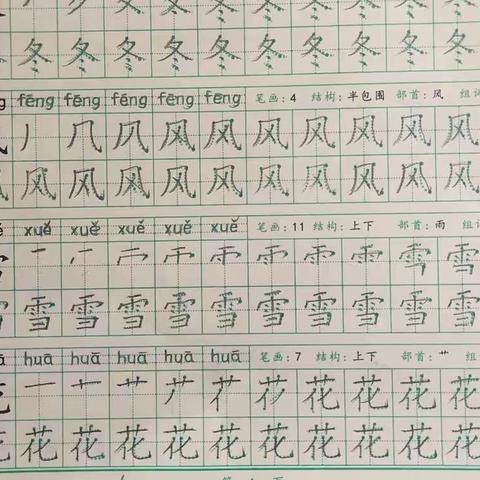 冬 冬 冬 冬 冬 冬 冬 冬 冬 冬
fēng fēng fēng fēng fēng 笔画：4 结构：半包围 部首：风 组
丿 几 风 风 风 风 风 风 风
风 风 风 风 风 风 风 风 风 风
xuě xuě xuě xuě xuě 笔画：11 结构：上下 部首：雨 组
雪 雪
雪 雪 雪 雪 雪 雪 雪 雪 雪 雪
huā huā huā huā huā 笔画：7 结构：上下 部首：艹 组
一 十 艹 花 花 花 花
花 花 花 花 花 花 花 花 花 花